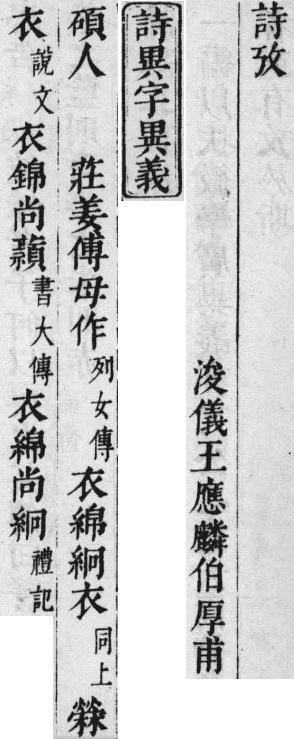 詩攷
浚儀王應麟伯厚甫
詩異字異義
碩人 莊姜傅母作列女傳衣綿絅衣同上 檾
衣說文衣錦尚顈書大傳衣綿尚絅禮記